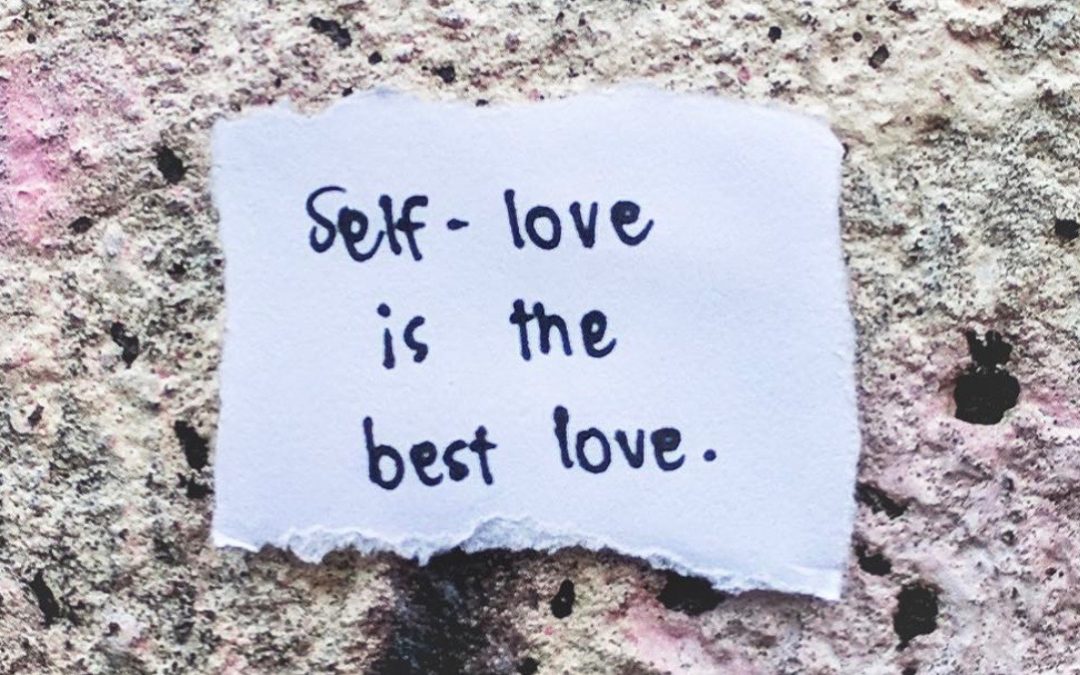 Self-love
is the
best love.